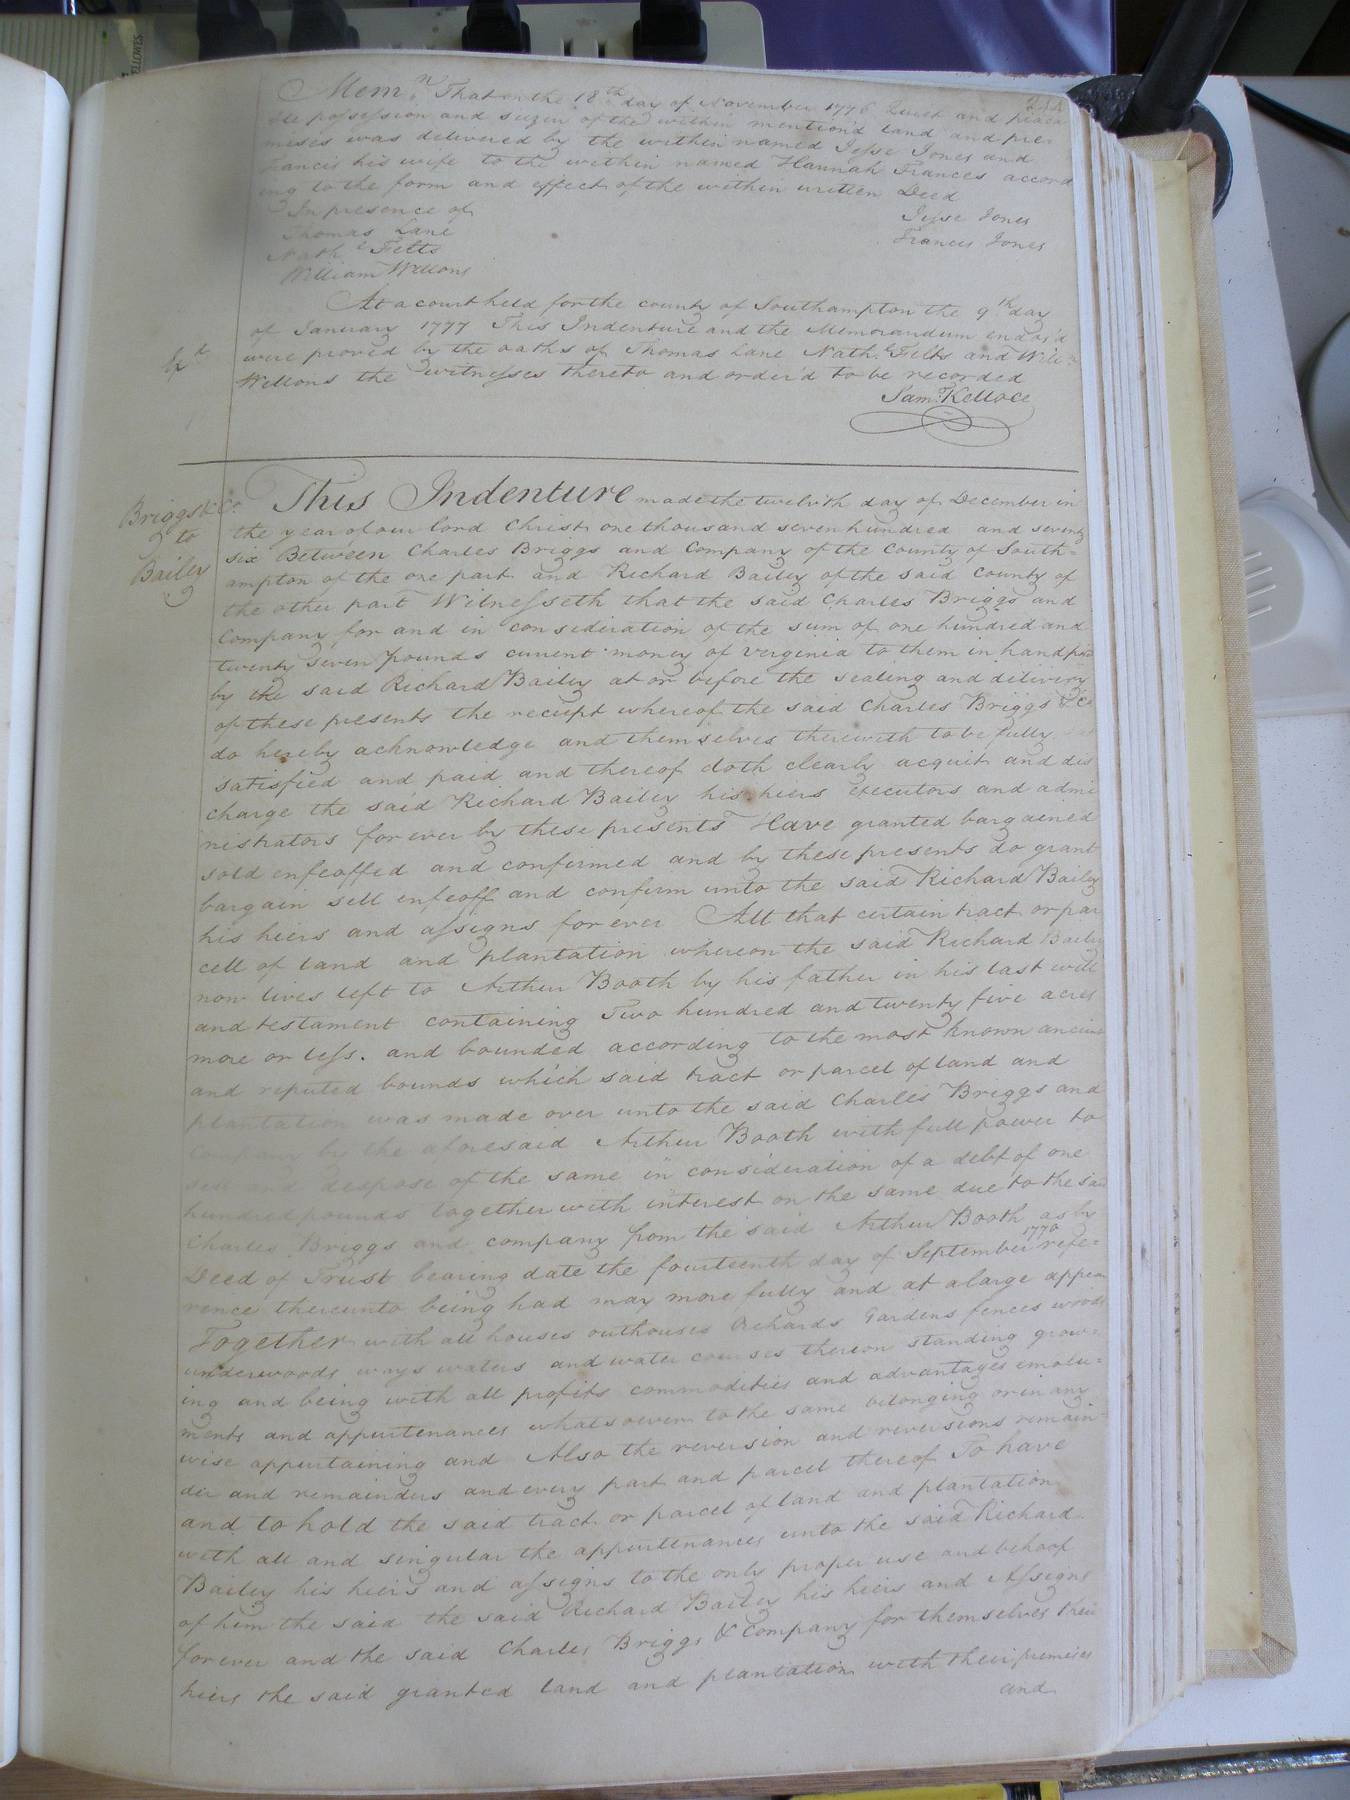 Mem.n That on the 18th day of November 1776 Quiet and peacea
ble possession and seizin of the within mention'd land and pre
mises was delivered by the within named Jesse Jones and
Francis his wife to the within named Hannah Frances accord
ing to the form and effect of the within written Deed
In presence of
Jesse Jones
Thomas Lane
Francis Jones
Nath.l Felts
William Wellons
At a court held for the county of Southampton the 9th day
of January 1777 This Indenture and the Memorandum endors'd
were proved by the oaths of Thomas Lane Nath.l Felts and Will.m
Wellons the witnesses thereto and order'd to be recorded
Ex.d
Sam.l Kelloce
Briggs & Co.
to
Bailey
This Indenture made the twelvth day of December in
the year of our lord Christ one thousand seven hundred and seventy
six Between Charles Briggs and Company of the County of South=
ampton of the one part and Richard Bailey of the said County of
the other part Witnesseth that the said Charles Briggs and
Company for and in consideration of the sum of one hundred and
twenty seven pounds current money of Virginia to them in hand paid
by the said Richard Bailey at or before the sealing and delivery
of these presents the receipt whereof the said Charles Briggs & Co
do hereby acknowledge and themselves therewith to be fully
satisfied and paid and thereof doth clearly acquit and dis
charge the said Richard Bailey his heirs executors and admi
nistrators for ever by these presents Have granted bargained
sold enfeoffed and confirmed and by these presents do grant
bargain sell enfeoff and confirm unto the said Richard Bailey
his heirs and assigns for ever All that certain tract or par
cell of land and plantation whereon the said Richard Bailey
now lives left to Arthur Booth by his father in his last will
and testament containing Two hundred and twenty five acres
more or less. and bounded according to the most known ancient
and reputed bounds which said tract or parcel of land and
plantation was made over unto the said Charles Briggs and
Company by the aforesaid Arthur Booth with full power to
sell and despose of the same in consideration of a debt of one
hundred pounds together with interest on the same due to the said
Charles Briggs and company from the said Arthur Booth as by
Deed of Trust bearing date the fourteenth day of September 1770 refe=
rence thereunto being had may more fully and at a large appear
Together with all houses outhouses Orchards Gardens fences woods
underwoods ways waters and water courses thereon standing grow=
ing and being with all profits commodities and advantages emolu=
ments and appurtenances whatsoever to the same belonging or in any
wise appurtaining and Also the reversion and reversions remain=
der and remainders and every part and parcel thereof To have
and to hold the said tract or parcel of land and plantation
with all and singular the appurtenances unto the said Richard
Bailey his heirs and assigns to the only proper use and behoof
of him the said the said Richard Bailey his heirs and Assigns
forever and the said Charles Briggs & Company for themselves their
heirs the said granted land and plantation with their premises
and